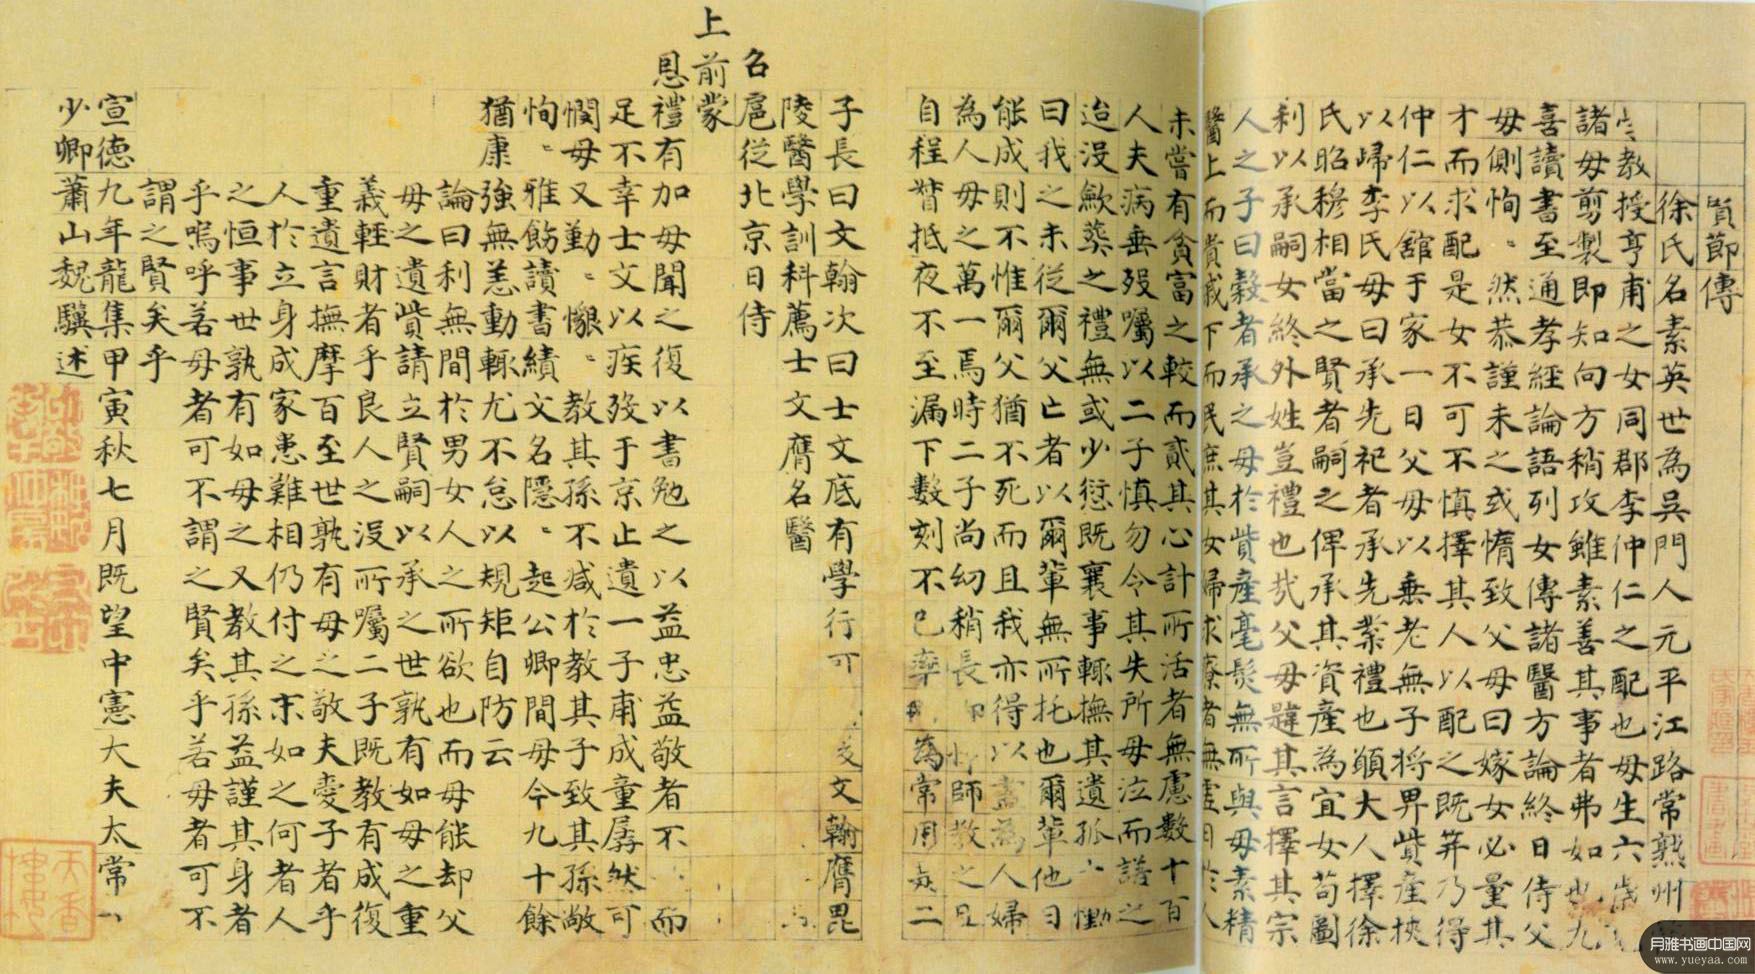 賢節傳
徐氏名素英世為吳門人元平江路常熟州
教授亨甫之女同郡李仲仁之配也毋生六歲
諸毋剪製即知向方稍攻雖素善其事者弗如也九
喜讀書至通孝經論語列女傳諸醫方論終日侍父
毋側恂〻然恭謹未之或惰致父毋曰嫁女必量其
才而求配是女不可不慎擇其人以配之既笄乃得
仲仁以舘于家一日父毋以無老無子將畀貲產挾
以歸李氏毋曰承先祀者承先業禮也願大人擇徐
氏昭穆相當之賢者嗣之俾承其資產為宜女苟圖
利以承嗣女終外姓豈禮也㦲父毋韙其言擇其宗
人之子曰穀者承之毋於貲產毫髮無所與毋素精
醫上而貴戚下而民庶其女婦求療者無虛日於人
未嘗有貧富之較而貳其心計所活者無慮數十百
人夫病垂歿囑以二子慎勿令其失所毋泣而諾之
迨沒歛葬之禮無或少愆既襄事輒撫其遺孤慟
曰我之未從爾父亡者以爾輩無所托也爾輩他日
能成則不惟爾父猶不死而且我亦得以盡為人婦
為人毋之萬一焉時二子尚幼稍長師教之
自程督抵夜不至漏下數刻不已率為常用是二
子長曰文翰次曰士文底有學行文翰膺毘
陵醫學訓科薦士文膺名醫
名
扈從北京日侍
上
前蒙
恩禮有加毋聞之復以書勉之以益忠益敬者不而
足不幸士文以疾歿于京止遺一子甫成童孱然可
憫毋又勤〻懇〻教其孫不減於教其子致其孫敵
恂〻雅飭讀書績文名隱〻起公卿間毋今九十餘
猶康強無恙動輒尤不怠以規矩自防云
論曰利無間於男女人之所欲也而毋能却父
毋之遺貲請立賢嗣以承之世孰有如毋之重
義輕財者乎良人之沒所囑二子既教有成復
重遺言撫摩百至世孰有毋之敬夫愛子者乎
人於立身成家患難相仍付之末如之何者人
之恒事世孰有如毋之又教其孫益謹其身者
乎嗚呼若毋者可不謂之賢矣乎若毋者可不
謂之賢矣乎
宣德九年龍集甲寅秋七月既望中憲大夫太常
少卿蕭山魏驥述
天香樓
月雅书画中国网
www.yueyaa.com